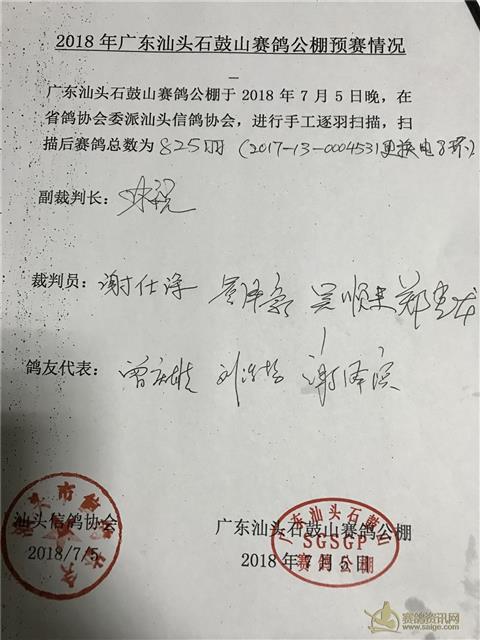 2018 年广东汕头石鼓山赛鸽公棚预赛情况
广东汕头石鼓山赛鸽公棚于 2018 年 7 月 5 日晚，在
省鸽协会委派汕头信鸽协会，进行手工逐羽扫描，扫
描后赛鸽总数为 825羽 (2017-13-0004531更换电子环)
副裁判长：
裁判员：谢仕泽 吴顺来 郑
鸽友代表：曾庆雄 刘 谢泽滨
汕头信鸽协会 广东汕头石鼓山赛鸽公棚
SGSGP
2018/7/5 2018 年 7 月 5 日
赛鸽公棚
赛鸽资讯网
www.saige.com